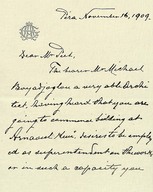 Pera November 16, 1909.
Dear Mr Peet,
The bearer Mr Michael
Boyadjoglou a very able Archi
tect, having heard that you are
going to commence building at
Arnaout Keui, desires to be employ
ed as superintendent on the work,
or in such a capacity you